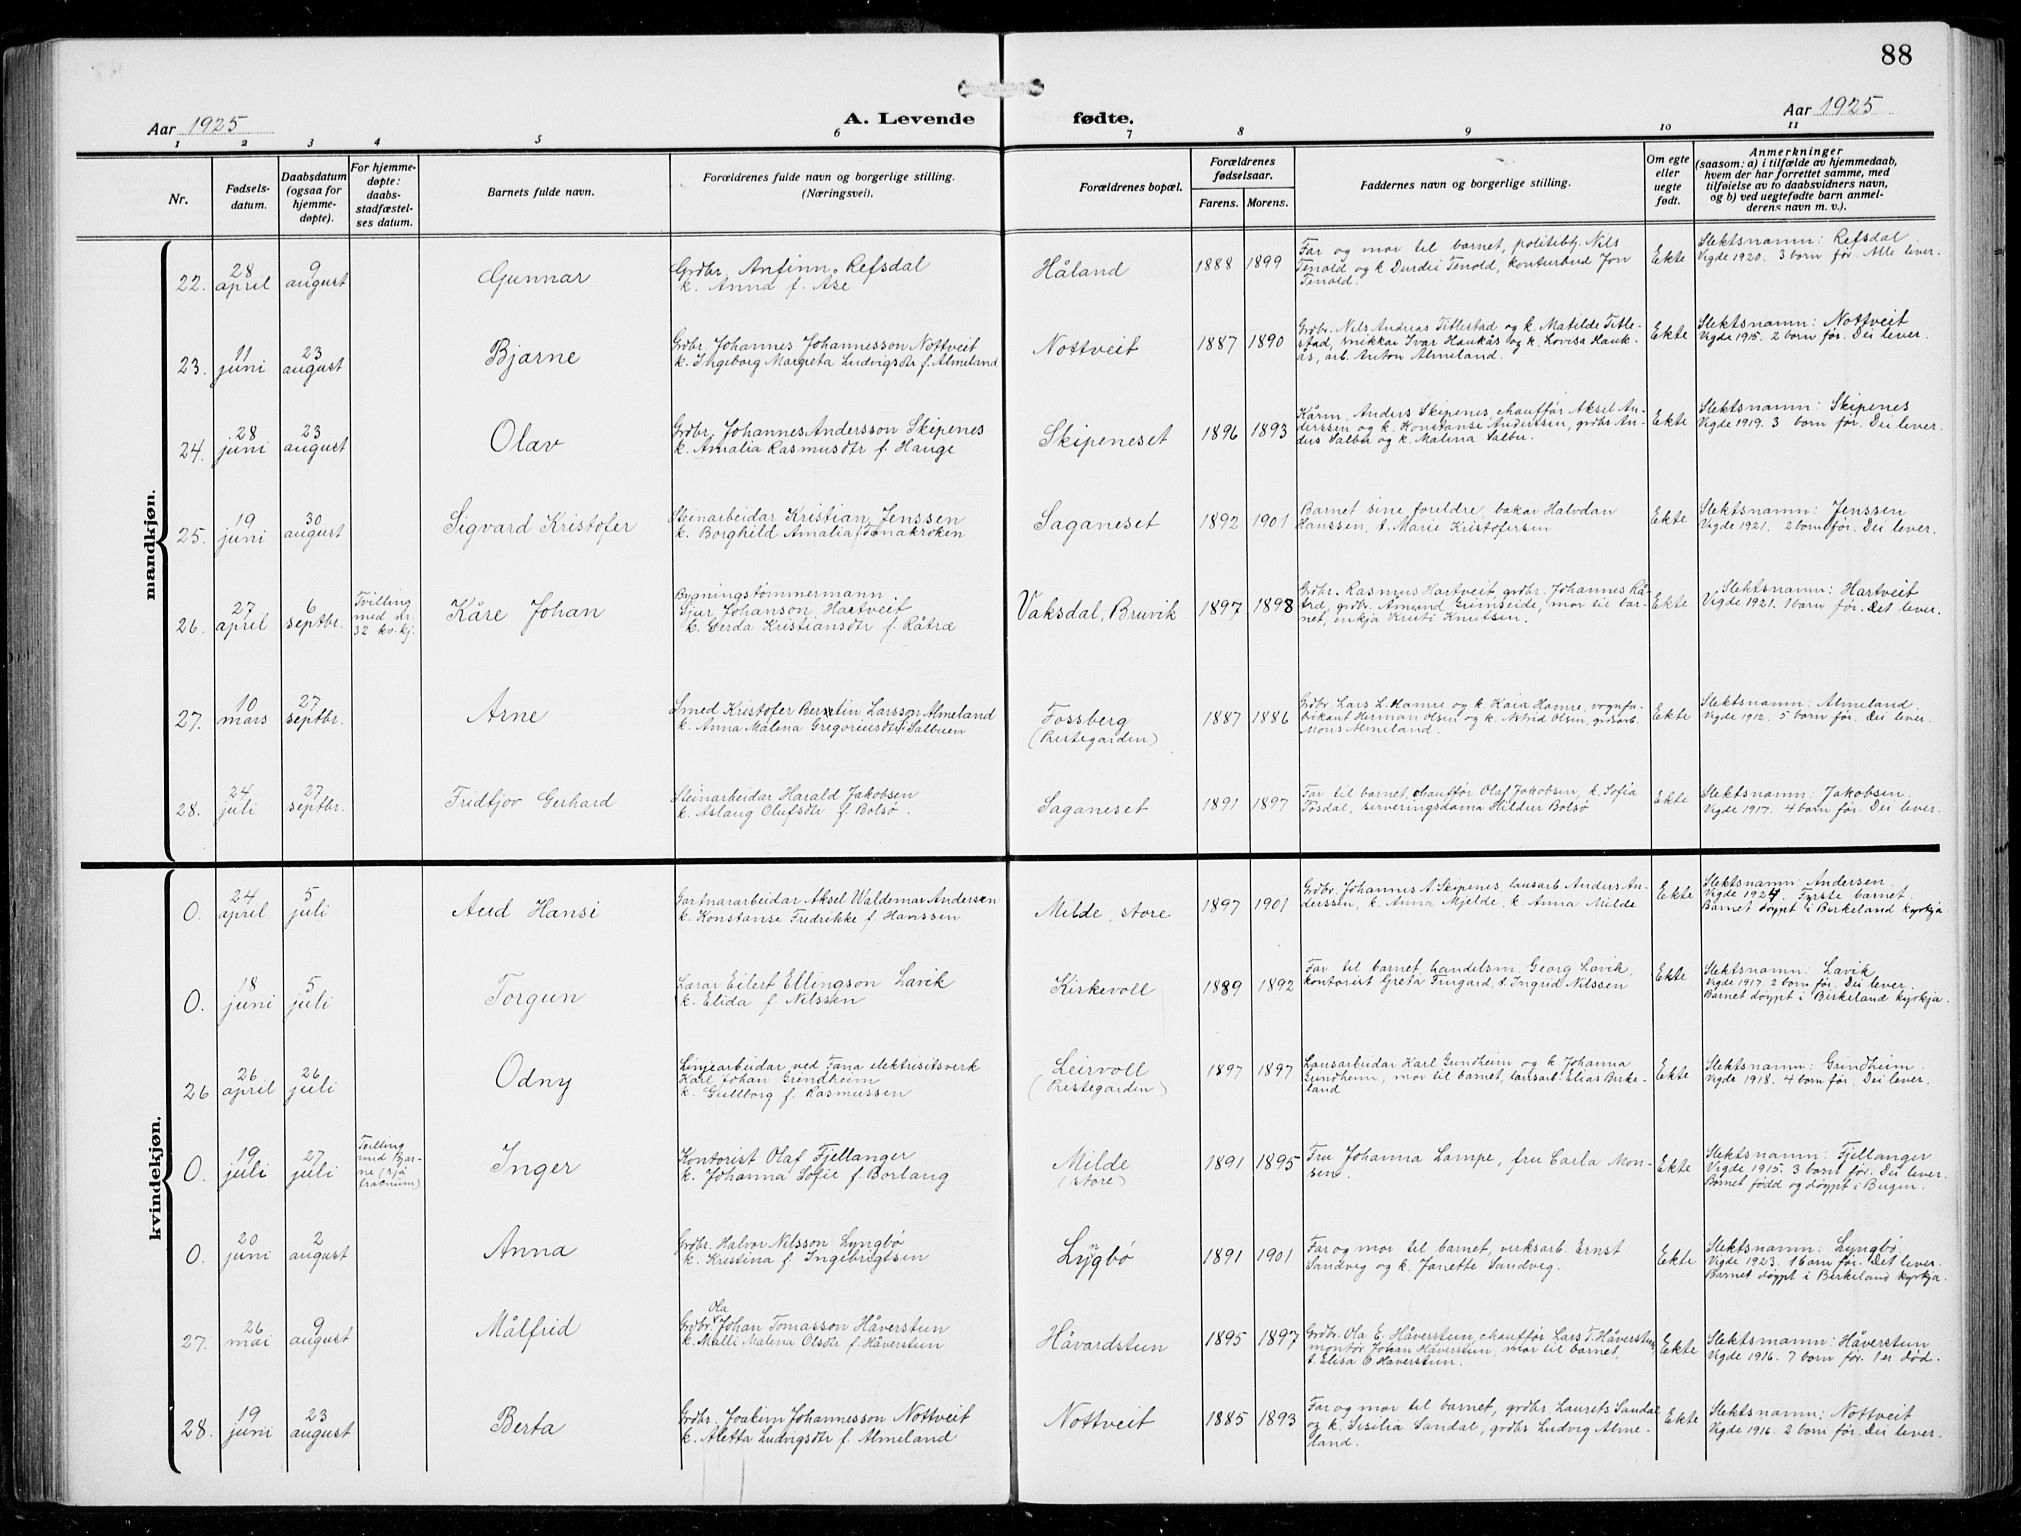 88
Aar 1925
A. Levende fødte.
Aar 1925
1 2 3 4 5 6 7 8 9 10 11
Nr.
Fødsels-
datum.
Daabsdatum
(ogsaa for
hjemme-
døpte).
For hjemme-
døpte:
daabs-
stadfæstel-
ses datum.
Barnets fulde navn.
Forældrenes fulde navn og borgerlige stilling.
(Næringsvei).
Forældrenes bopæl.
Forældrenes
fødselsaar.
Farens. Morens.
Faddernes navn og borgerlige stilling.
Om egte
eller
uegte
født.
Anmerkninger
(saasom: a) i tilfælde av hjemmedaab,
hvem der har forrettet samme, med
tilføielse av to daabsvidners navn,
og b) ved uegtefødte barn anmel-
derens navn m. v.).
mandkjøn.
22.
28
april
9
august
Gunnar
Grdbr. Anfinn Refsdal
k. Anna f. Ase
Håland
1888 1899
Far og mor til barnet, politibtj. Nils
Tenold og k. Durdei Tenold, konturbud Jon
Tenold.
Ekte
Slektsnamn: Refsdal
Vigde 1920. 3 born før. Alle lever.
23.
11
juni
23
august
Bjarne
Grdbr. Johannes Johannesson Nottveit
k. Ingeborg Margreta Ludvigsdtr f. Almeland
Nottveit
1887 1890
Grdbr. Nils Andreas Titlestad og k. Matilde Title-
stad, snikkar Ivar Haukås og k. Lovisa Hauk-
ås, arb. Anton Almeland.
Ekte
Slektsnamn: Nottveit
Vigde 1915. 2 born før. Dei lever.
24.
28
juni
23
august
Olav
Grdbr. Johannes Andersson Skipenes
k. Amalia Rasmusdtr f. Hauge
Skipeneset
1896 1893
Kårm. Anders Skipenes, chauffør Aksel An-
derssen og k. Konstanse Anderssen, grdbr An-
ders Salbu og k. Malena Salbu.
Ekte
Slektsnamn: Skipenes
Vigde 1919. 3 born før. Dei lever.
25.
19
juni
30
august
Sigvard Kristofer
Steinarbeidar Kristian Jenssen
k. Borghild Amalia f. Fanakroken
Saganeset
1892 1901
Barnet sine foreldre, bakar Halvdan
Hanssen, t. Marie Kristofersen
Ekte
Slektsnamn: Jenssen
Vigde 1921. 2 born før. Dei lever.
26.
27
april
6
septbr.
Tvilling
med nr.
32 kv.kj.
Kåre Johan
Bygningstømmermann
Sjur Johanson Hartveit
k. Gerda Kristiansdtr f. Råtræ
Vaksdal, Bruvik
1897 1898
Grdbr. Rasmus Hartveit, grdbr. Johannes Rå-
træ, grdbr. Amund Grimseide, mor til bar-
net, enkja Kristi Knutsen.
Ekte
Slektsnamn: Hartveit
Vigde 1921. 1 born før. Det lever.
27.
10
mars
27
septbr.
Arne
Smed Kristofer Berntin Larsson Almeland
k. Anna Malena Gregoriusdtr f. Salbuen
Fossberg
(Prestegarden)
1887 1886
Grdbr. Lars L. Hamre og k. Kaia Hamre, vognfa-
brikant Herman Olsen og k. Astrid Olsen, grdsarb.
Mons Almeland.
Ekte
Slektsnamn: Almeland.
Vigde 1912. 5 born før. Dei lever.
28.
24
juli
27
septbr.
Fridtjov Gerhard
Steinarbeidar Harald Jakobsen
k. Aslaug Olufsdtr f. Bolsø.
Saganeset
1891 1897
Far til barnet, chauffør Olaf Jakobsen, k. Sofia
Fosdal, serveringsdama Hildur Bolsø
Ekte
Slektsnamn: Jakobsen.
Vigde 1917. 4 born før. Dei lever.
kvindekjøn.
0.
24
april
5
juli
Aud Hansi
Gartnararbeidar Aksel Waldemar Andersen
k. Konstanse Fredrikke f. Hanssen
Milde, store
1897 1901
Grdbr. Johannes A. Skipenes, lausarb. Anders An-
derssen, k. Anna Mjelde, k. Anna Milde
Ekte
Slektsnamn: Andersen.
Vigde 1924. Fyrste barnet.
Barnet døypt i Birkeland kyrkja.
0.
18
juni
5
juli
Torgun
Lærar Eilert Ellingson Lavik
k. Elida f. Nilssen
Kirkevoll
1889 1892
Far til barnet, handelsm. Georg Lavik,
kontorist Greta Frugard, t. Ingrid Nilssen
Ekte
Slektsnamn: Lavik
Vigde 1917. 2 born før. Dei lever.
Barnet døypt i Birkeland kyrkja.
26
26
april
26
juli
Odny
Linjearbeidar ved Fana elektrisitsverk
Karl Johan Grindheim
k. Gullborg f. Rasmussen
Leirvoll
(Prestegarden)
1897 1897
Lausarbeidar Karl Grindheim og k. Johanna
Grindheim, mor til barnet, lausarb. Elias Birke-
land
Ekte
Slektsnamn: Grindheim.
Vigde 1918. 4 born før. Dei lever.
0.
19
juli
27
juli
Tvilling
med Bjar-
ne
Inger
Kontorist Olaf Fjellanger
k. Johanna Sofie f. Borlaug
Milde
(store)
1891 1895
Fru Johanna Lampe, fru Carla Mon-
sen.
Ekte
Slektsnamn: Fjellanger
Vigde 1915. 3 born før. Dei lever.
Barnet fødd og døypt i Bergen.
0.
20
juni
2
august
Anna
Grdbr. Halvor Nilsson Lyngbø
k. Kristina f. Ingebrigtsen
Lyngbø
1891 1901
Far og mor til barnet, verksarb. Ernst
Sandveg og k. Janette Sandveg.
Ekte
Slektsnamn: Lyngbø
Vigde 1923. 1 born før. Det lever.
Barnet døypt i Birkeland kyrkja.
27.
26
mai
9
august
Målfrid
Ola
Grdbr. Johan Tomasson Håverstun
k. Malli Malena Olsdtr f. Håverstun
Håvardstun
1895 1897
Grdbr. Ola E. Håverstun, chauffør Lars T. Håverstun,
montør Johan Håverstun, mor til barnet,
t. Elisa O. Håverstun.
Ekte
Slektsnamn: Håverstun
Vigde 1916. 7 born før. 1 er død.
28.
19
juni
23
august
Berta
Grdbr. Joakim Johannesson Nottveit
k. Aletta Ludvigsdtr f. Almeland
Nottveit
1885 1893
Far og mor til barnet, grdbr. Laurets Sandal
og k. Sesilia Sandal, grdbr Ludvig Alme-
land.
Ekte
Slektsnamn: Nottveit
Vigde 1916. 2 born før. Dei lever.